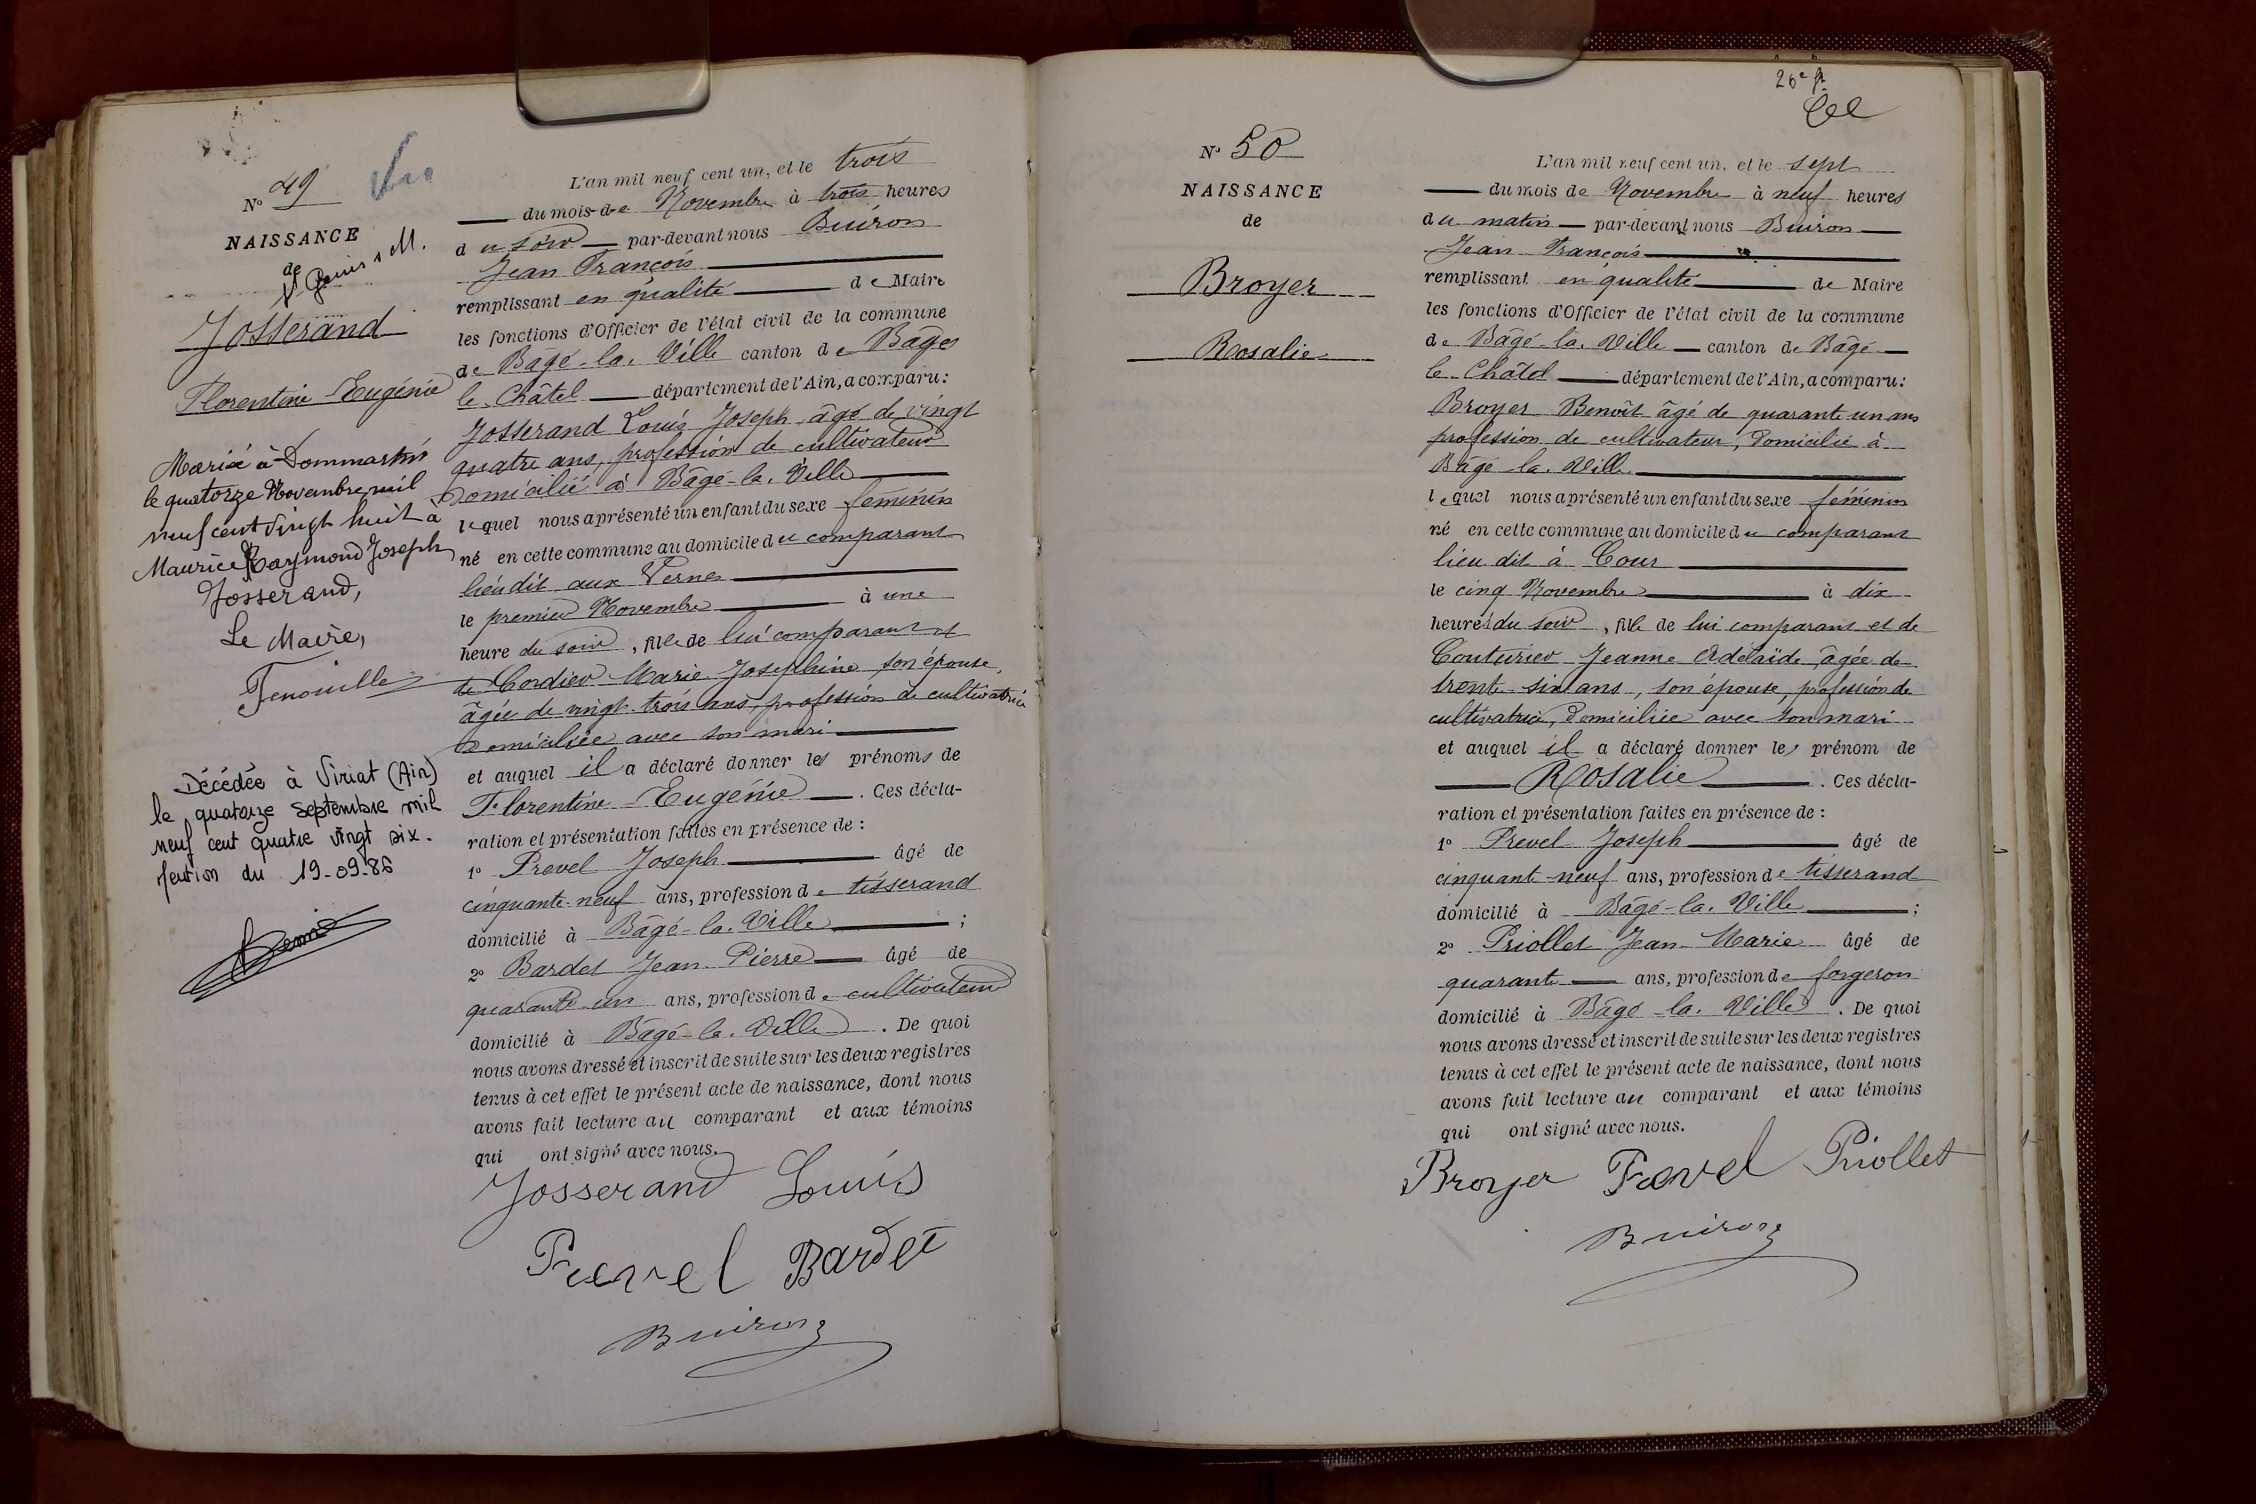 N° 49
NAISSANCE
de
Josserand
Florentine Eugénie
Mariée à Dommartin
le quatorze Novembre mil
neuf cent vingt huit à
Maurice Raymond Joseph
Josserand,
Le Maire,
Fenouille
Décédée à Viriat (Ain)
le quatorze septembre mil
neuf cent quatre vingt six.
Mention du 19-09-86
L'an mil neuf cent un, et le trois
du mois de Novembre à trois heures
du soir par-devant nous Buiron
Jean François
remplissant en qualité de Maire
les fonctions d'Officier de l'état civil de la commune
de Bâgé-la-Ville canton de Bâgé
le Châtel département de l'Ain, a comparu:
Josserand Louis Joseph âgé de vingt
quatre ans, profession de cultivateur
Domicilié à Bâgé-la-Ville
lequel nous a présenté un enfant du sexe féminin
né en cette commune au domicile du comparant
lieu dit aux Vernes
le premier Novembre à une
heure du soir, fille de lui comparant et
de Cordier Marie Joséphine son épouse,
âgée de vingt-trois ans, profession de cultivatrice
Domiciliée avec son mari
et auquel il a déclaré donner les prénoms de
Florentine Eugénie. Ces décla-
ration et présentation faites en présence de :
1° Prevel Joseph âgé de
cinquante-neuf ans, profession de tisserand
domicilié à Bâgé-la-Ville ;
2° Bardet Jean Pierre âgé de
quarante un ans, profession de cultivateur
domicilié à Bâgé-la-Ville. De quoi
nous avons dressé et inscrit de suite sur les deux registres
tenus à cet effet le présent acte de naissance, dont nous
avons fait lecture au comparant et aux témoins
qui ont signé avec nous.
Josserand Louis
Prevel Bardet
Buiron
N° 50
NAISSANCE
de
Broyer
Rosalie
L'an mil neuf cent un, et le sept
du mois de Novembre à neuf heures
du matin par-devant nous Buiron
Jean François
remplissant en qualité de Maire
les fonctions d'Officier de l'état civil de la commune
de Bâgé-la-Ville canton de Bâgé
le Châtel département de l'Ain, a comparu:
Broyer Benoît âgé de quarante un ans
profession de cultivateur, Domicilié à
Bâgé la Ville
lequel nous a présenté un enfant du sexe féminin
né en cette commune au domicile du comparant
lieu dit à Cour
le cinq Novembre à dix
heures du soir, fille de lui comparant et de
Couturier Jeanne Adélaïde, âgée de
trente six ans, son épouse, profession de
cultivatrice, Domiciliée avec son mari
et auquel il a déclaré donner les prénom de
Rosalie. Ces décla-
ration et présentation faites en présence de :
1° Prevel Joseph âgé de
cinquant-neuf ans, profession de tisserand
domicilié à Bâgé-la-Ville ;
2° Priollet Jean Marie âgé de
quarante ans, profession de forgeron
domicilié à Bâgé-la-Ville. De quoi
nous avons dressé et inscrit de suite sur les deux registres
tenus à cet effet le présent acte de naissance, dont nous
avons fait lecture au comparant et aux témoins
qui ont signé avec nous.
Broyer Prevel Priollet
Buiron